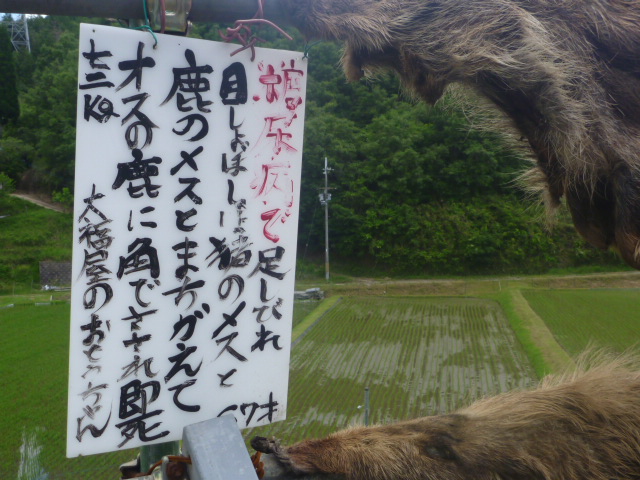 糖尿病で足しびれ
目しょぼしょぼ猪のメスと
67才
鹿のメスとまちがえて
オスの鹿に角でさされ即死
七二Kg 大福屋のおとうちゃん